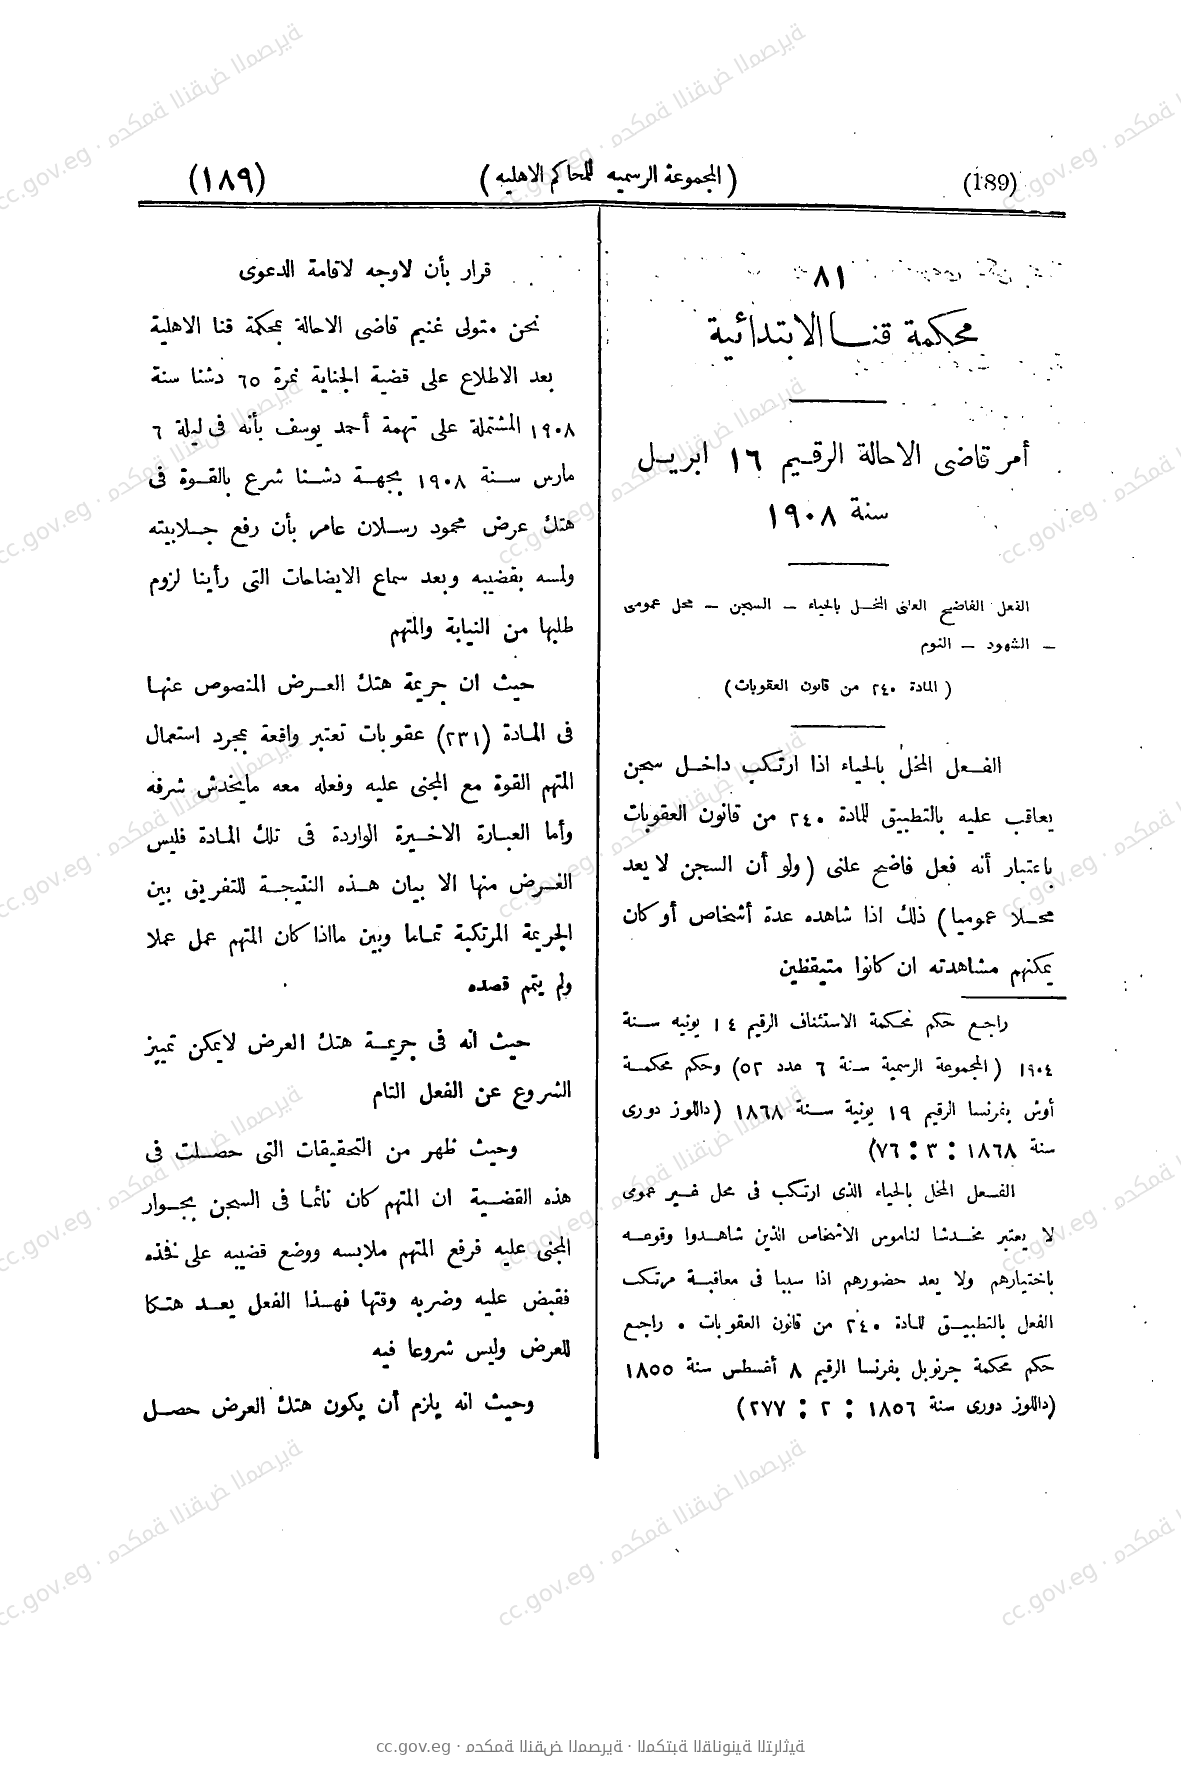 (189)
(المجموعة الرسمية للمحاكم الاهلية)
(١٨٩)
٨١
محكمة قنا الابتدائية
أمر قاضى الاحالة الرقيم ١٦ ابريل
سنة ١٩٠٨
الفعل الفاضح العلنى المخل بالحياء – السجن – محل عمومى
– الشهود – النوم
(المادة ٢٤٠ من قانون العقوبات)
الفعل المخل بالحياء اذا ارتكب داخل سجن
يعاقب عليه بالتطبيق للمادة ٢٤٠ من قانون العقوبات
باعتبار أنه فعل فاضح علنى (ولو أن السجن لا يعد
محلا عموميا) ذلك اذا شاهده عدة أشخاص أو كان
يمكنهم مشاهدته ان كانوا متيقظين
راجع حكم محكمة الاستئناف الرقيم ١٤ يونيه سنة
١٩٠٤ (المجموعة الرسمية سنة ٦ عدد ٥٢) وحكم محكمة
أوش بفرنسا الرقيم ١٩ يونية سنة ١٨٦٨ (داللوز دورى
سنة ١٨٦٨ : ٣ : ٧٦)
الفعل المخل بالحياء الذى ارتكب فى محل غير عمومى
لا يعتبر مخدشا لناموس الاشخاص الذين شاهدوا وقوعه
باختيارهم ولا يعد حضورهم اذا سببا فى معاقبة مرتكب
الفعل بالتطبيق للمادة ٢٤٠ من قانون العقوبات . راجع
حكم محكمة جرنوبل بفرنسا الرقيم ٨ أغسطس سنة ١٨٥٥
(داللوز دورى سنة ١٨٥٦ : ٢ : ٢٧٧)
قرار بأن لاوجه لاقامة الدعوى
نحن متولى غنيم قاضى الاحالة بمحكمة قنا الاهلية
بعد الاطلاع على قضية الجناية نمرة ٦٥ دشنا سنة
١٩٠٨ المشتملة على تهمة أحمد يوسف بأنه فى ليلة ٦
مارس سنة ١٩٠٨ بجهة دشنا شرع بالقوة فى
هتك عرض محمود رسلان عامر بأن رفع جلابيته
ولمسه بقضيبه وبعد سماع الايضاحات التى رأينا لزوم
طلبها من النيابة والمتهم
حيث ان جريمة هتك العرض المنصوص عنها
فى المادة (٢٣١) عقوبات تعتبر واقعة بمجرد استعمال
المتهم القوة مع المجنى عليه وفعله معه مايخدش شرفه
وأما العبارة الاخيرة الواردة فى تلك المادة فليس
الغرض منها الا بيان هذه النتيجة للتفريق بين
الجريمة المرتكبة تماما وبين مااذا كان المتهم عمل عملا
ولم يتم قصده
حيث انه فى جريمة هتك العرض لايمكن تمييز
الشروع عن الفعل التام
وحيث ظهر من التحقيقات التى حصلت فى
هذه القضية ان المتهم كان نائما فى السجن بجوار
المجنى عليه فرفع المتهم ملابسه ووضع قضيبه على فخذه
فقبض عليه وضربه وقتها فهذا الفعل يعد هتكا
للعرض وليس شروعا فيه
وحيث انه يلزم أن يكون هتك العرض حصل
cc.gov.eg · ةيرصملا ضقنلا ةمكحم · ةيثارتلا ةينوناقلا ةبتكملا